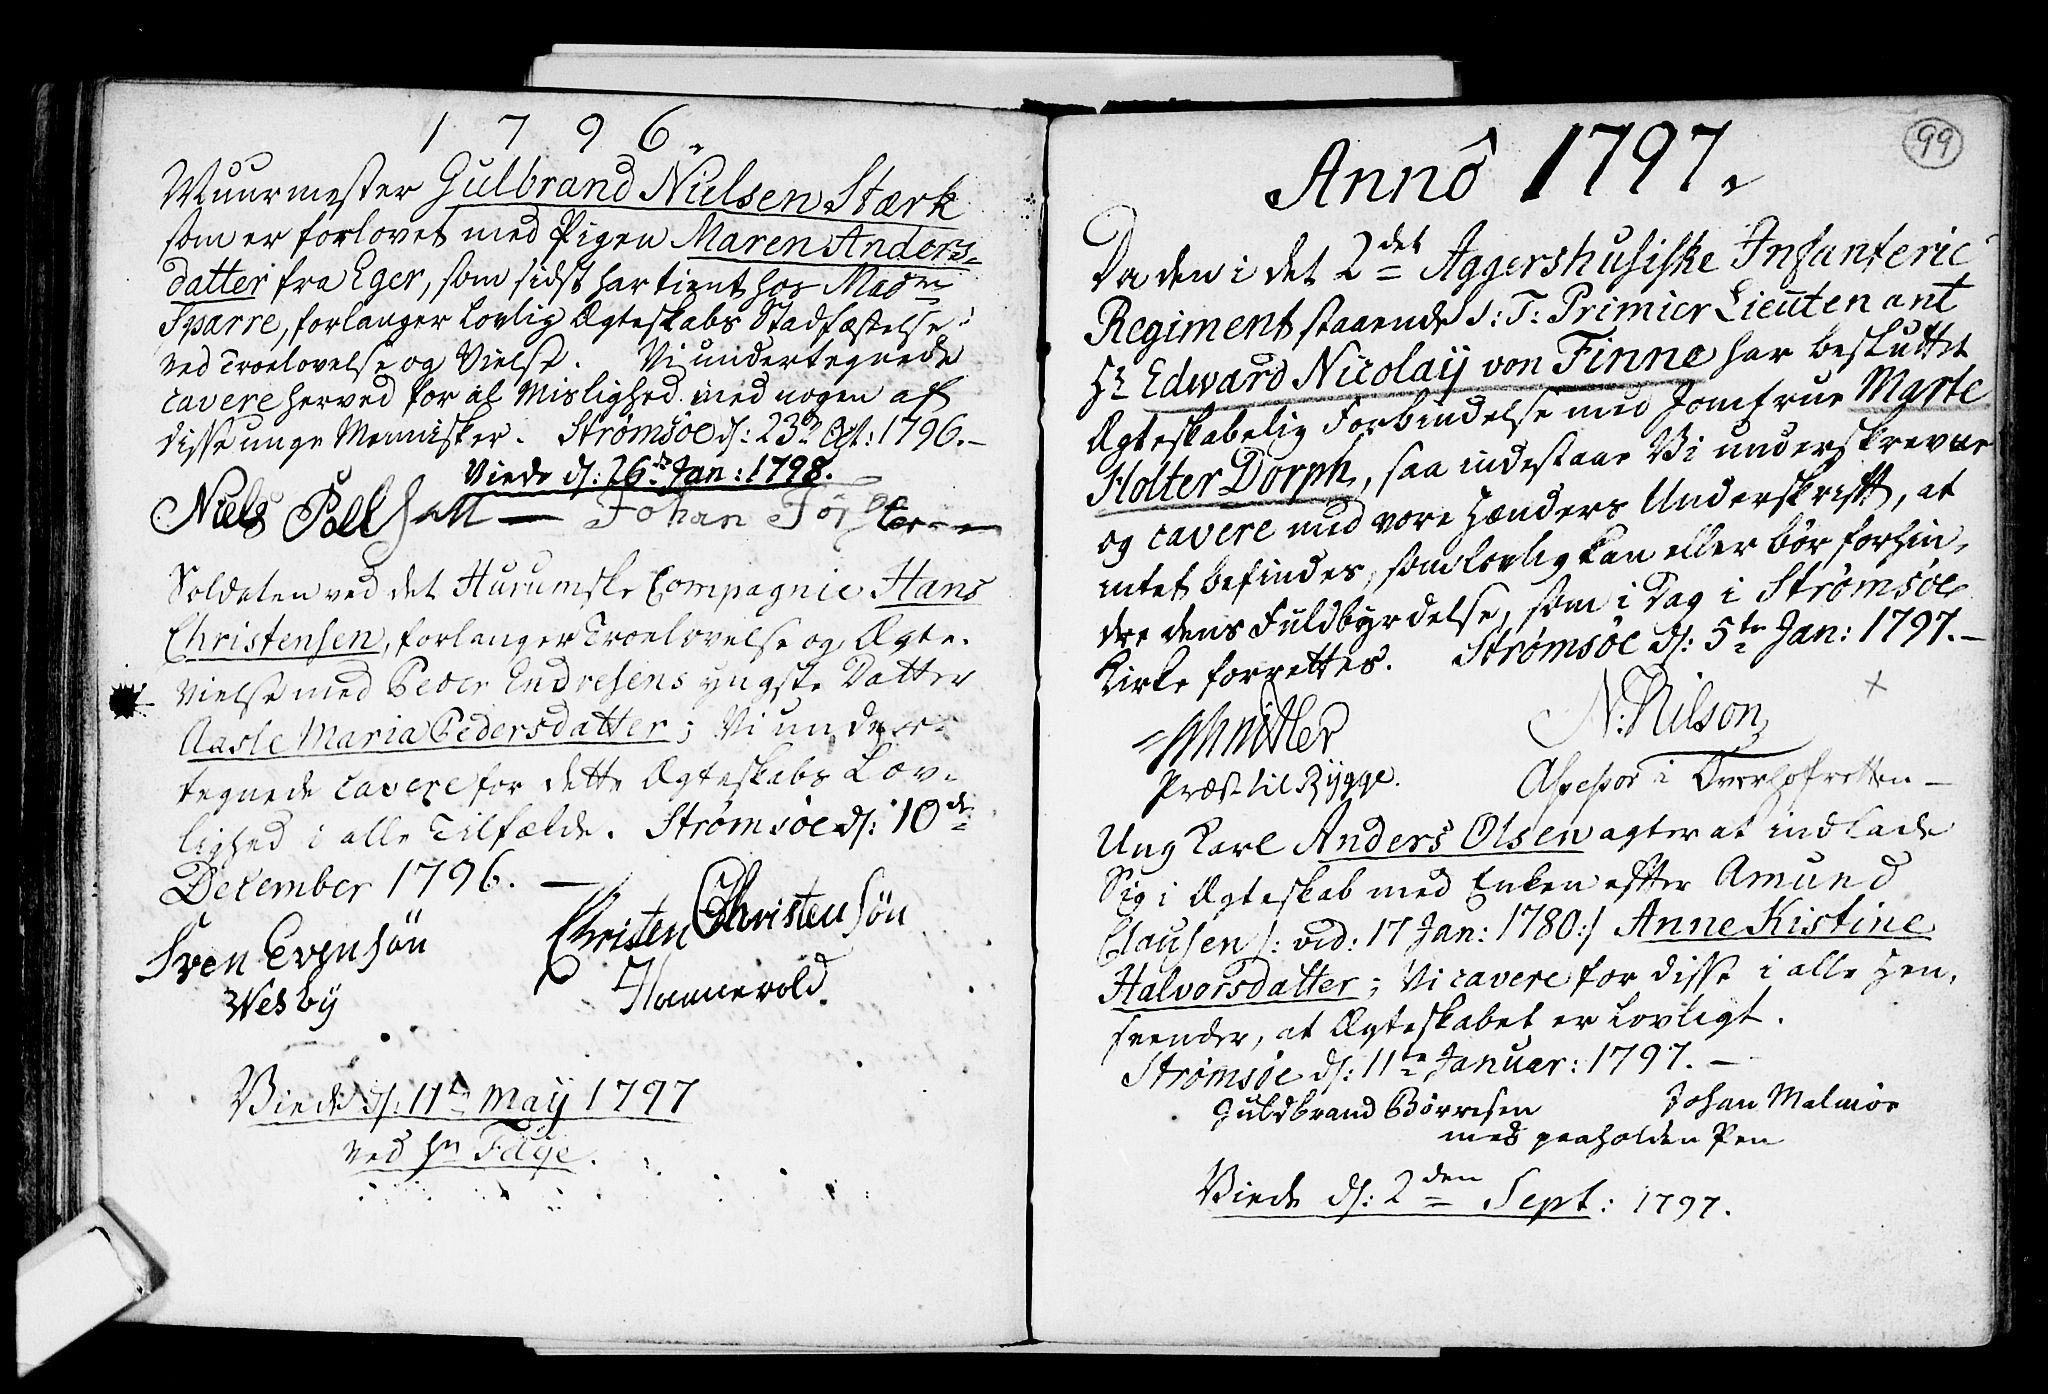 1796.
Muurmester Gulbrand Nielsen Stærk
som er forlovet med Pigen Maren Anders-
datter fra Eger, som sidst har tient hos Madm
Sparre, forlanger Lovlig Ægteskabs Stadfæstelse
ved Troelovelse og Vielse. Vi undertegnede
cavere herved for al Mislighed med nogen af
disse unge Mennisker. Strømsøe d: 23de Oct: 1796.-
Viede d: 26de Jan: 1798.
Niels Johan
Soldaten ved det Hurumske Compagnie Hans
Christensen, forlanger Troelovelse og Ægte-
vielse med Peder Endresens yngste Datter
Aasle Maria Pedersdatter; Vi under-
tegnede cavere for dette Ægteskabs Lov-
lighed i alle Tilfælde. Strømsøe d: 10de
December 1796. —
Sven Evensøn Christen Christensøn
Wesby Hannevold.
Viede d: 11te May 1797
ved Hr Faye.
99
Annô 1797.
Da den i det 2det Aggershusiske Infanterie
Regiment staaende S: T: Primier Lieutenant
Hr Edward Nicolaij von Finne har besluttet
Ægteskabelig Forbindelse med Jomfrue Marte
Holter Dorph, saa indestaae Vi underskrevne
og cavere med vore Hænders Underskrifft, at
intet befindes, som lovlig kan eller bør forhin-
dre dens Fuldbyrdelse, som i Dag i Strømsøe
Kirke forrettes. Strømsøe d: 5te Jan: 1797.-
Schnitler N: Nilson
Præst til Rygge. Assessor i Overhofretten -
Ung Karl Anders Olsen agter at indlade
Sig i Ægteskab med Enken effter Amund
Clausen /: vid: 17 Jan: 1780:/ Anne Kistine
Halvorsdatter; Vi cavere for disse i alle Hen-
seender, at Ægteskabet er Lovligt.
Strømsøe d: 11te Januar: 1797. -
Guldbrand Børresen Johan Malmøe
med paaholden Pen
Viede d: 2den Sept: 1797.